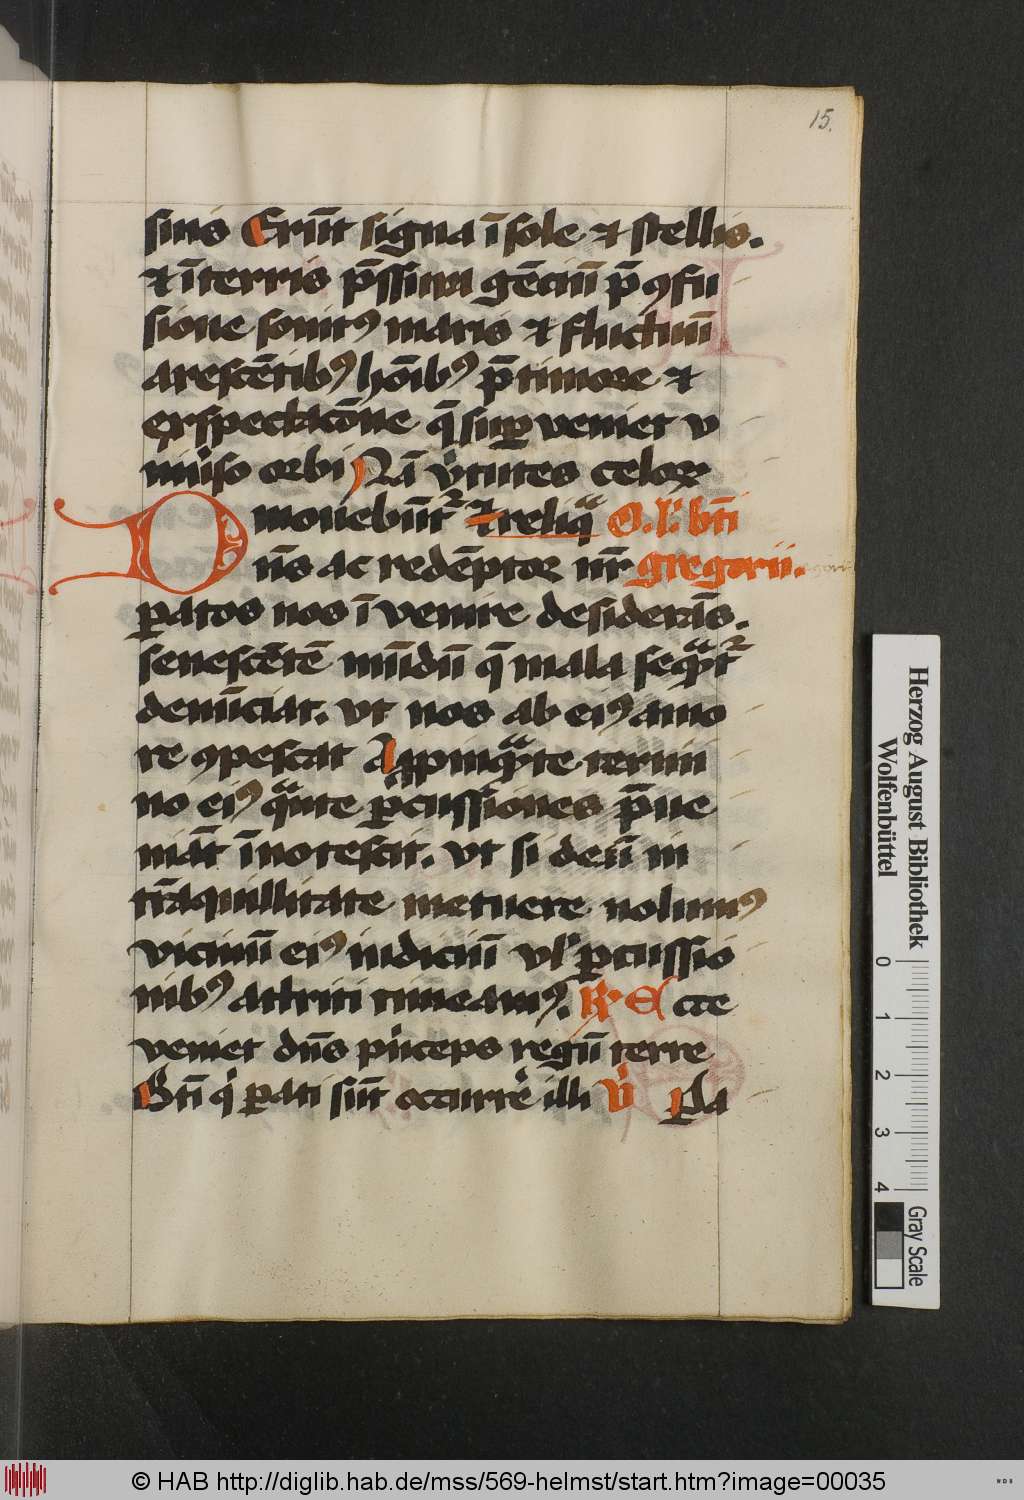 15.
suis Erūt signa ī sole et stellis.
et ī terris p̄ssura gēciū p̄ ꝯfu
sione sonitꝰ maris et fluctuū
arescētibꝰ hoībꝰ p̄ timore et
exspectacōne q̄ suꝑ veniet v
niu͛so orbi Nā v͛tutes celoꝝ
mouebūtᷣ et reliqᷓ O. l͛. bt̄i
Dn̄s ac redēptor nr̄ gregorii.
ꝑatos nos īvenire desiderās.
senescētē mūdū q̄ mala seqᷓtᷣ
denūciat. vt nos ab eiꝰ amo
re ꝯpescat App̱inqᷓte termi
no eiꝰ qᷓnte ꝑcussiones p̄ue
niāt īnotescit. vt si deū in
trāquillitate metuere nolumꝰ
vicinū eiꝰ iudiciū vl̓ ꝑcussio
nibꝰ attriti timeamꝰ. R̷ Ecce
veniet dn̄s pͥnceps regū terre
Bt̄i qͥ ꝑati sūt occurre͛ illi V͛ Ꝑ la
Herzog August Bibliothek
Wolfenbüttel
0 1 2 3 4
Gray Scale
© HAB http://diglib.hab.de/mss/569-helmst/start.htm?image=00035